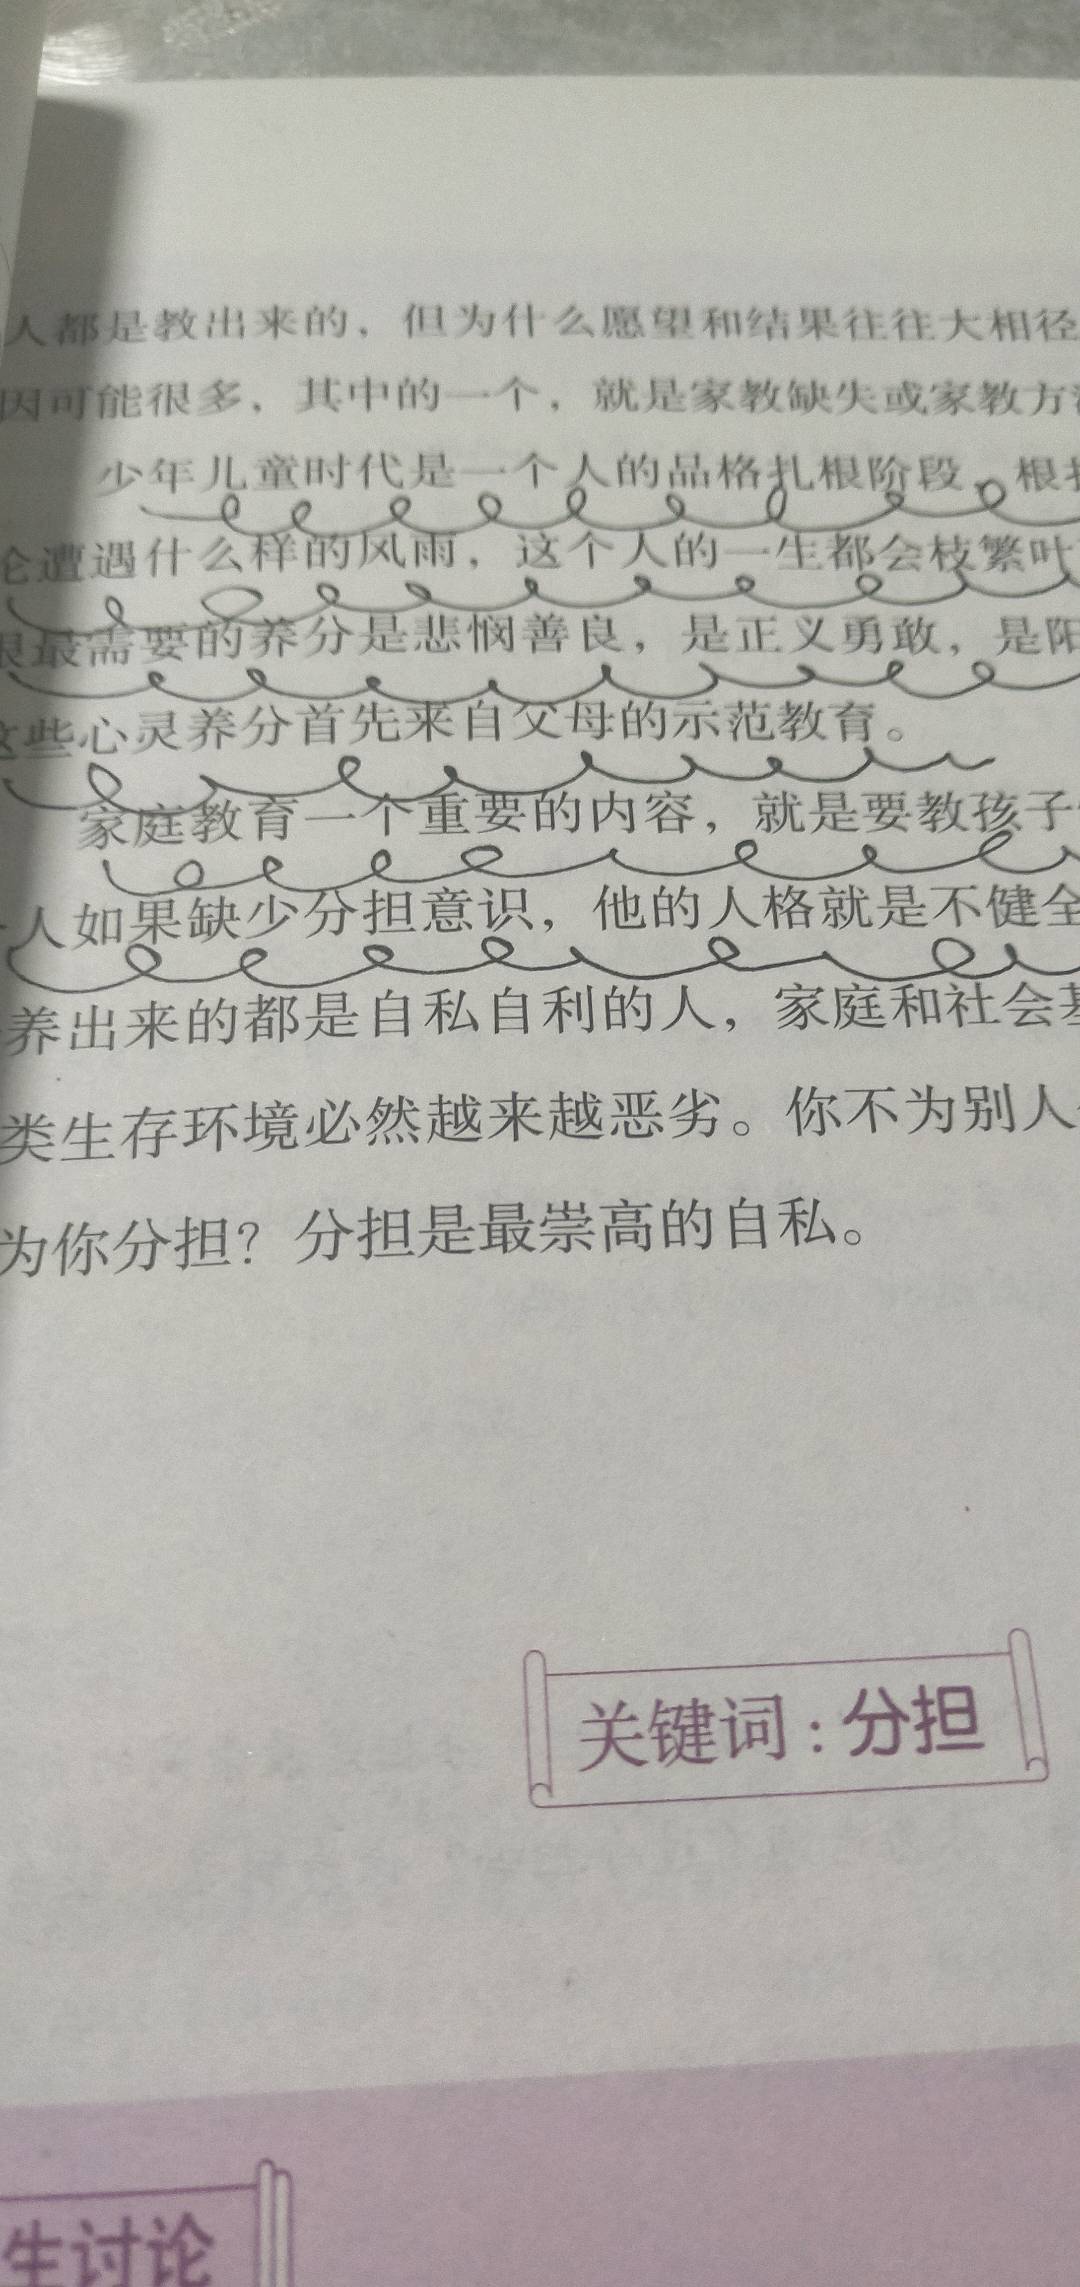 人都是教出来的，但为什么愿望和结果往往大相径
因可能很多，其中的一个，就是家教缺失或家教方
少年儿童时代是一个人的品格扎根阶段。根
论遭遇什么样的风雨，这个人的一生都会枝繁叶
最需要的养分是悲悯善良，是正义勇敢，是阳
这些心灵养分首先来自父母的示范教育。
家庭教育一个重要的内容，就是要教孩子
人如果缺少分担意识，他的人格就是不健全
养出来的都是自私自利的人，家庭和社会
类生存环境必然越来越恶劣。你不为别人
为你分担？分担是最崇高的自私。
关键词：分担
生讨论